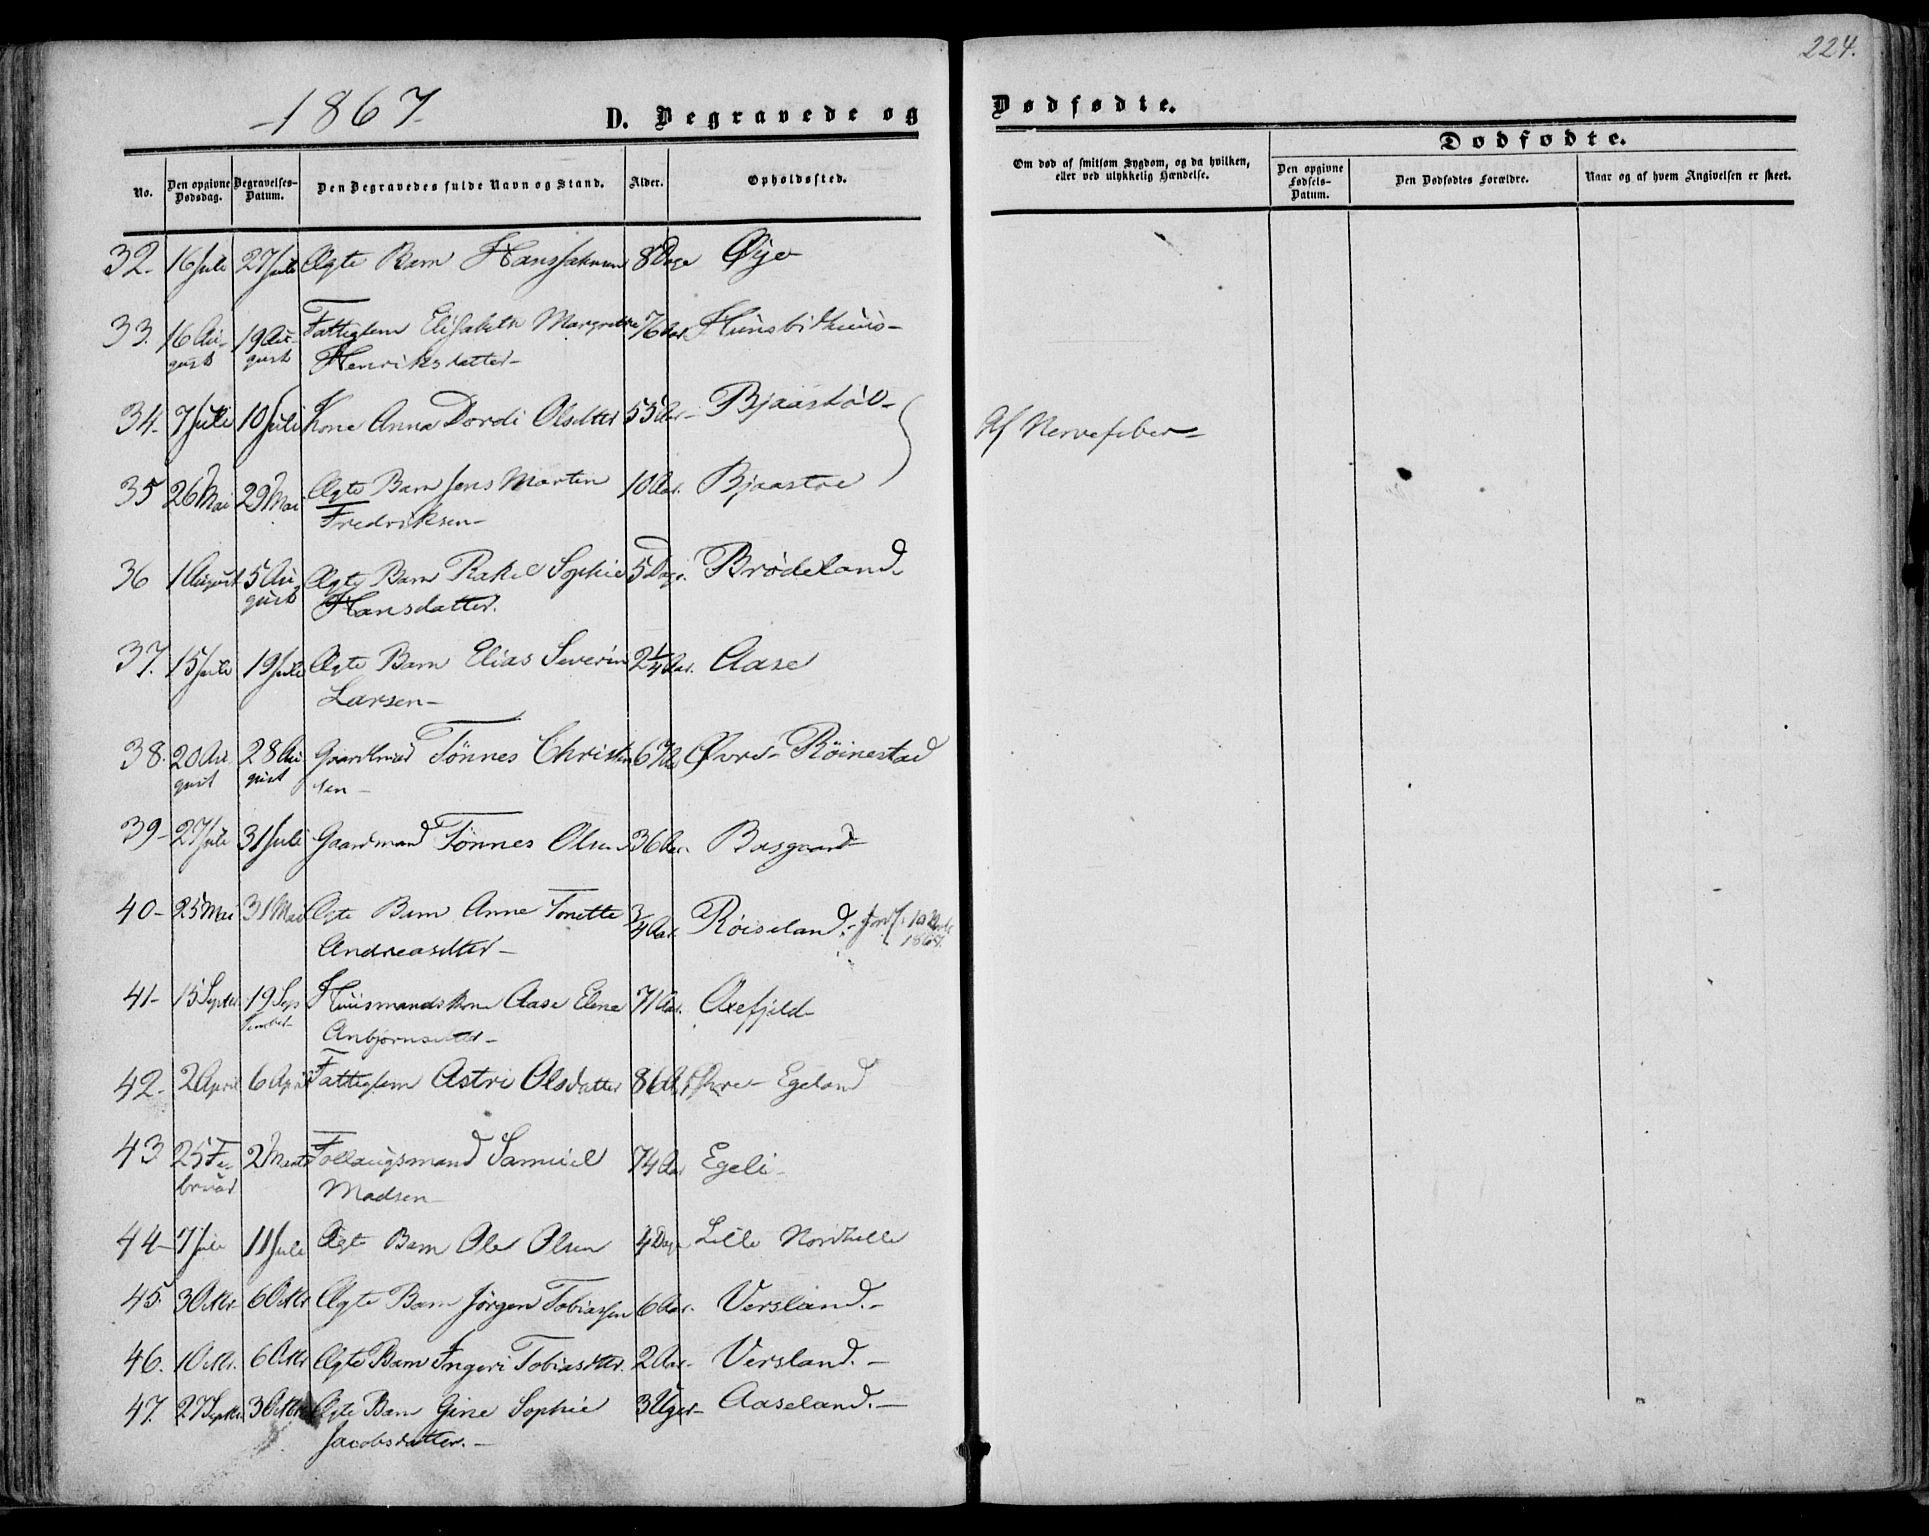 224.
-1867-
D. Begravede og
Dødfødte.
No.
Den opgivne Dødsdag.
Begravelses-Datum.
Den Begravedes fulde Navn og Stand.
Alder.
Opholdssted.
Om død af smitsom Sygdom, og da hvilken, eller ved ulykkelig Hændelse.
Dødfødte.
Den opgivne Fødsels-Datum.
Den Dødfødtes Forældre.
Naar og af hvem Angivelsen er skeet.
32. 16 Juli 27 Juli Ægte Barn 8 Dage Øye
33. 16 Au- 19 Au- Fattiglem Elisabeth Margrethe 76 Aar.
gust gust Henriksdatter-
34. 7 Juli 10 Juli Kone Anna Dordi Olsdtter 55 Aar- Bjaastøl-
Af Nervefeber-
35 26 Mai 29 Mai Ægte Barn Jens Martin 10 Aar. Bjaastøl
Fredriksen-
36 1 August 5 Au Ægte Barn Rakel Sophie 5 Dage. Brødeland.
gust Hansdatter.
37. 15 Juli 19 Juli Ægte Barn Elias Severin 2 1/4 Aar. Aase
Larsen-
38. 20 Au 28 Au Gaardmand Tønnes Christen Øvre- Røinestad
gust gust sen-
39- 27 Juli 31 Juli Gaardmand Tønnes Olsen 36 Aar. Bosgaard-
40- 25 Mai 31 Mai Ægte Barn Anne Tonette 3/4 Aar. Røiseland.-
Andreasdtter- 1867.
41- 15 Septbr. 19 Sep Huusmandskone Aase Elene 71 Aar. Oxefjeld-
tember- Anbjørnsdtter-
42- 2 April 6 April Fattiglem Astri Olsdatter 86 Aar Øvre- Egeland
43 25 Fe- 2 Marts Follaugsmand Samuel 74 Aar Egeli-
bruar Madsen-
44- 7 Juli 11 Juli Ægte Barn Ole Olsen 4 Dage Lille Nordhelle
45. 3 Oktr. 6 Oktr. Ægte Barn Jørgen Tobiassen 6 Aar. Versland.-
46. 1 Oktr. 6 Oktr Ægte Barn Ingeri Tobiasdtter. 2 Aar- Versland.-
47. 27 Septbr. 3 Oktr Ægte Barn Gine Sophie 3 Uger- Aaseland.-
Jacobsdatter.-